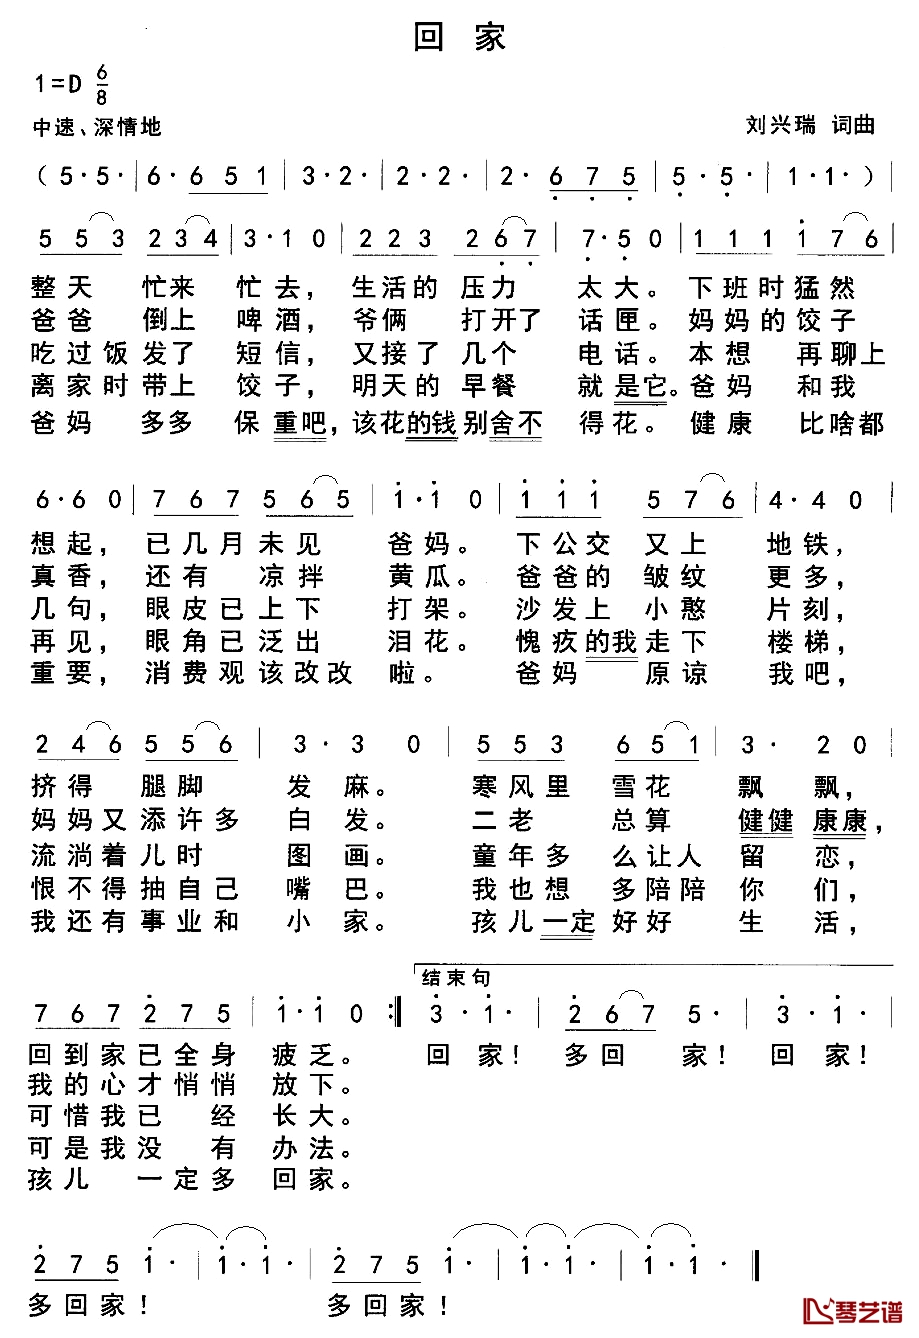 回 家
1=D 6/8
中速、深情地
刘兴瑞 词曲
( 5· 5· | 6· 6 5 1 | 3· 2· | 2· 2· | 2· 6 7 5 | 5· 5· | 1· 1· ) |
5 5 3 2 3 4 | 3· 1 0 | 2 2 3 2 6 7 | 7· 5 0 | 1 1 1 1 7 6 |
整天 忙来 忙去，生活的 压力 太大。下班时猛然
爸爸 倒上 啤酒，爷俩 打开了 话匣。妈妈的饺子
吃过饭发了 短信，又接了 几个 电话。本想 再聊上
离家时带上 饺子，明天的 早餐 就是它。爸妈 和我
爸妈 多多 保重吧，该花的钱别舍不 得花。健康 比啥都
6· 6 0 | 7 6 7 5 6 5 | 1· 1 0 | 1 1 1 5 7 6 | 4· 4 0 |
想起，已几月未见 爸妈。下公交又上 地铁，
真香，还有 凉拌 黄瓜。爸爸的皱纹 更多，
几句，眼皮已上下 打架。沙发上小憨 片刻，
再见，眼角已泛出 泪花。愧疚的我走下 楼梯，
重要，消费观该改改 啦。爸妈 原谅 我吧，
2 4 6 5 5 6 | 3· 3 0 | 5 5 3 6 5 1 | 3· 2 0 |
挤得 腿脚 发麻。寒风里雪花 飘飘，
妈妈又添许多 白发。二老 总算 健健康康，
流淌着儿时 图画。童年多么让人 留恋，
恨不得抽自己 嘴巴。我也想 多陪陪 你们，
我还有事业和 小家。孩儿一定好好 生活，
结束句
7 6 7 2 7 5 | 1· 1 0 :‖ 3· 1· | 2 6 7 5· | 3· 1· |
回到家已全身 疲乏。 回家！多回 家！回家！
我的心才悄悄 放下。
可惜我已 经 长大。
可是我没 有 办法。
孩儿 一定多 回家。
2 7 5 1· | 1· 1· | 2 7 5 1· | 1· 1· | 1· 1· ‖
多回家！ 多回家！
琴艺谱